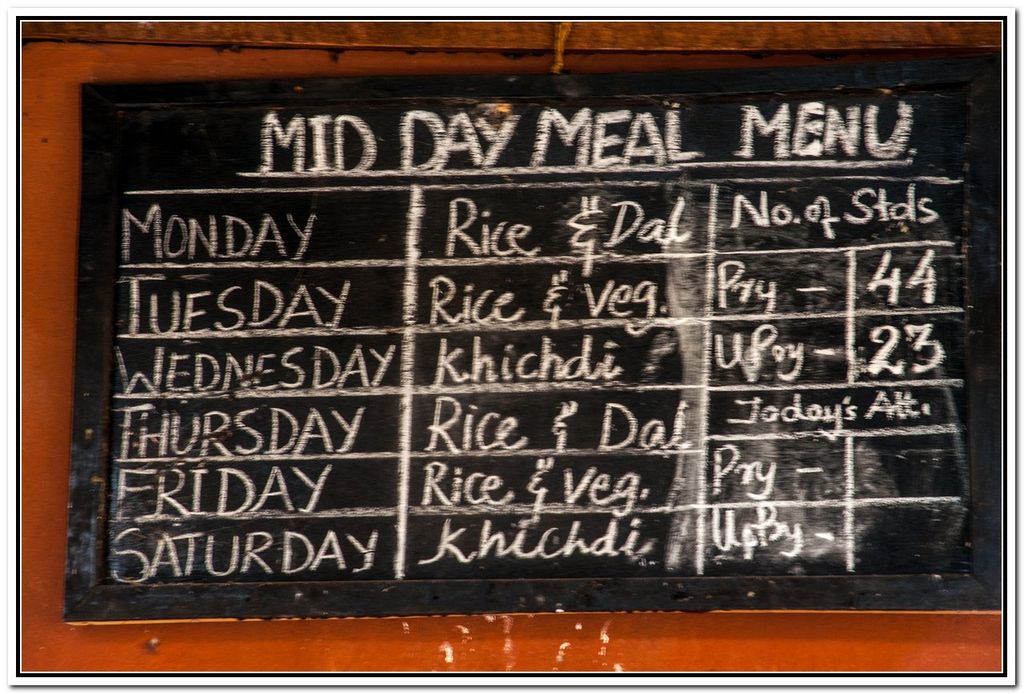 MID DAY MEAL MENU.
MONDAY Rice & Dal No. of Stds
TUESDAY Rice & Veg. Pry - 44
WEDNESDAY Khichdi UPry - 23
THURSDAY Rice & Dal Today's Att.
FRIDAY Rice & Veg. Pry -
SATURDAY Khichdi UpPry -